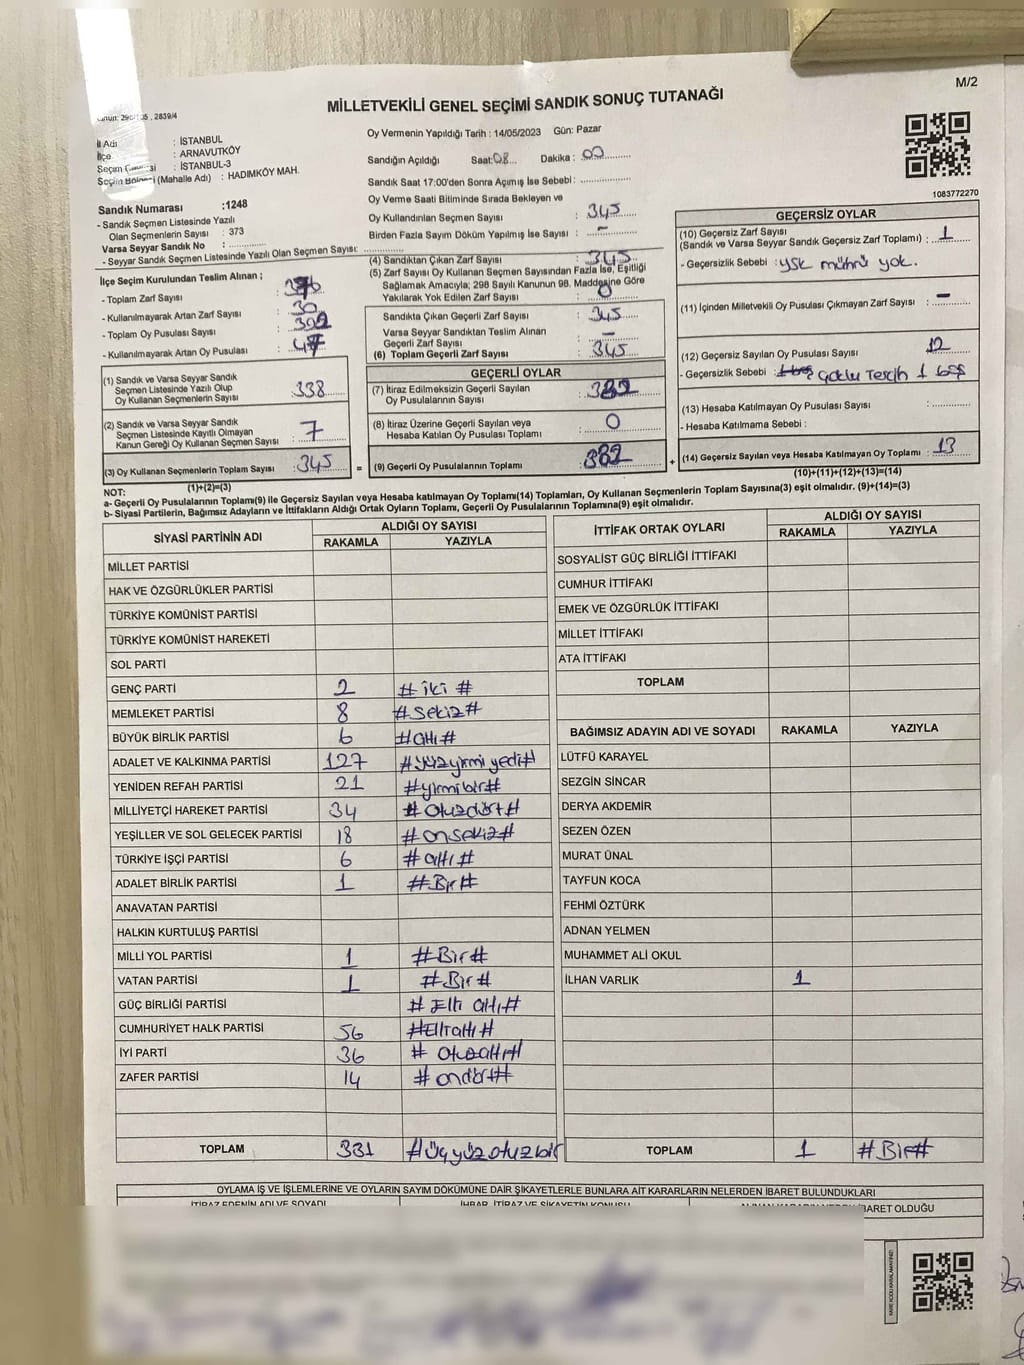 M/2
MİLLETVEKİLİ GENEL SEÇİMİ SANDIK SONUÇ TUTANAĞI
, 2839/4
İl Adı : İSTANBUL
İlçe : ARNAVUTKÖY
Seçim Çevresi : İSTANBUL-3
Seçim Bölgesi (Mahalle Adı) : HADIMKÖY MAH.
Sandık Numarası :1248
- Sandık Seçmen Listesinde Yazılı
Olan Seçmenlerin Sayısı : 373
Varsa Seyyar Sandık No :
- Seyyar Sandık Seçmen Listesinde Yazılı Olan Seçmen Sayısı:
İlçe Seçim Kurulundan Teslim Alınan ;
- Toplam Zarf Sayısı :
- Kullanılmayarak Artan Zarf Sayısı : 30
- Toplam Oy Pusulası Sayısı :
- Kullanılmayarak Artan Oy Pusulası :
(1) Sandık ve Varsa Seyyar Sandık
Seçmen Listesinde Yazılı Olup
Oy Kullanan Seçmenlerin Sayısı : 338
(2) Sandık ve Varsa Seyyar Sandık
Seçmen Listesinde Kayıtlı Olmayan
Kanun Gereği Oy Kullanan Seçmen Sayısı : 7
(3) Oy Kullanan Seçmenlerin Toplam Sayısı : 345
(1)+(2)=(3)
Oy Vermenin Yapıldığı Tarih : 14/05/2023 Gün: Pazar
Sandığın Açıldığı Saat: 08 Dakika : 00
Sandık Saat 17:00'den Sonra Açımış İse Sebebi :
Oy Verme Saati Bitiminde Sırada Bekleyen ve
Oy Kullandırılan Seçmen Sayısı : 345
Birden Fazla Sayım Döküm Yapılmış İse Sayısı : -
(4) Sandıktan Çıkan Zarf Sayısı : 345
(5) Zarf Sayısı Oy Kullanan Seçmen Sayısından Fazla İse, Eşitliği
Sağlamak Amacıyla; 298 Sayılı Kanunun 98. Maddesine Göre
Yakılarak Yok Edilen Zarf Sayısı : 0
Sandıkta Çıkan Geçerli Zarf Sayısı : 345
Varsa Seyyar Sandıktan Teslim Alınan
Geçerli Zarf Sayısı : -
(6) Toplam Geçerli Zarf Sayısı : 345
GEÇERLİ OYLAR
(7) İtiraz Edilmeksizin Geçerli Sayılan
Oy Pusulalarının Sayısı :
(8) İtiraz Üzerine Geçerli Sayılan veya
Hesaba Katılan Oy Pusulası Toplamı : 0
= (9) Geçerli Oy Pusulalarının Toplamı : 332 +
1083772270
GEÇERSİZ OYLAR
(10) Geçersiz Zarf Sayısı
(Sandık ve Varsa Seyyar Sandık Geçersiz Zarf Toplamı) : 1
- Geçersizlik Sebebi : YSK mührü yok.
(11) İçinden Milletvekili Oy Pusulası Çıkmayan Zarf Sayısı : -
(12) Geçersiz Sayılan Oy Pusulası Sayısı : 12
- Geçersizlik Sebebi : Çoklu Tercih 1 boş
(13) Hesaba Katılmayan Oy Pusulası Sayısı :
- Hesaba Katılmama Sebebi :
(14) Geçersiz Sayılan veya Hesaba Katılmayan Oy Toplamı : 13
(10)+(11)+(12)+(13)=(14)
NOT:
a- Geçerli Oy Pusulalarının Toplamı(9) ile Geçersiz Sayılan veya Hesaba katılmayan Oy Toplamı(14) Toplamları, Oy Kullanan Seçmenlerin Toplam Sayısına(3) eşit olmalıdır. (9)+(14)=(3)
b- Siyasi Partilerin, Bağımsız Adayların ve İttifakların Aldığı Ortak Oyların Toplamı, Geçerli Oy Pusulalarının Toplamına(9) eşit olmalıdır.
SİYASİ PARTİNİN ADI ALDIĞI OY SAYISI
RAKAMLA YAZIYLA
MİLLET PARTİSİ
HAK VE ÖZGÜRLÜKLER PARTİSİ
TÜRKİYE KOMÜNİST PARTİSİ
TÜRKİYE KOMÜNİST HAREKETİ
SOL PARTİ
GENÇ PARTİ 2 # iki #
MEMLEKET PARTİSİ 8 # Sekiz #
BÜYÜK BİRLİK PARTİSİ 6 # altı #
ADALET VE KALKINMA PARTİSİ 127 # yüz yirmi yedi #
YENİDEN REFAH PARTİSİ 21 # yirmi bir #
MİLLİYETÇİ HAREKET PARTİSİ 34 # otuzdört #
YEŞİLLER VE SOL GELECEK PARTİSİ 18 # onsekiz #
TÜRKİYE İŞÇİ PARTİSİ 6 # altı #
ADALET BİRLİK PARTİSİ 1 # Bir #
ANAVATAN PARTİSİ
HALKIN KURTULUŞ PARTİSİ
MİLLİ YOL PARTİSİ 1 # Bir #
VATAN PARTİSİ 1 # Bir #
GÜÇ BİRLİĞİ PARTİSİ # Elli altı #
CUMHURİYET HALK PARTİSİ 56 # Elli altı #
İYİ PARTİ 36 # otuzaltı #
ZAFER PARTİSİ 14 # ondört #
TOPLAM 331 # Üçyüzotuzbir
İTTİFAK ORTAK OYLARI ALDIĞI OY SAYISI
RAKAMLA YAZIYLA
SOSYALİST GÜÇ BİRLİĞİ İTTİFAKI
CUMHUR İTTİFAKI
EMEK VE ÖZGÜRLÜK İTTİFAKI
MİLLET İTTİFAKI
ATA İTTİFAKI
TOPLAM
BAĞIMSIZ ADAYIN ADI VE SOYADI RAKAMLA YAZIYLA
LÜTFÜ KARAYEL
SEZGİN SİNCAR
DERYA AKDEMİR
SEZEN ÖZEN
MURAT ÜNAL
TAYFUN KOCA
FEHMİ ÖZTÜRK
ADNAN YELMEN
MUHAMMET ALİ OKUL
İLHAN VARLIK 1
TOPLAM 1 # Bir #
OYLAMA İŞ VE İŞLEMLERİNE VE OYLARIN SAYIM DÖKÜMÜNE DAİR ŞİKAYETLERLE BUNLARA AİT KARARLARIN NELERDEN İBARET BULUNDUKLARI
İTİRAZ EDENİN ADI VE SOYADI İHBAR, İTİRAZ VE ŞİKAYETİN KONUSU İBARET OLDUĞU